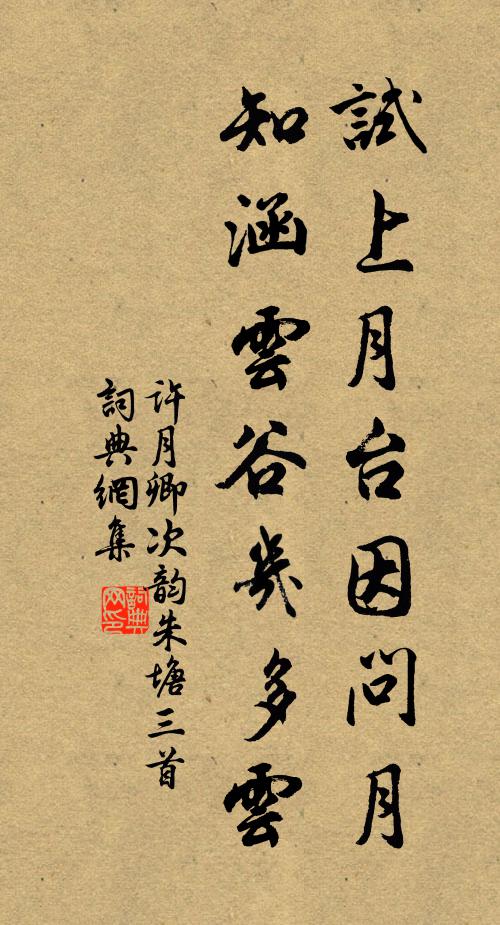 試上月台因問月
知涵雲谷幾多雲
許月卿次韵朱塘三首
詞典網集
詞典
网印